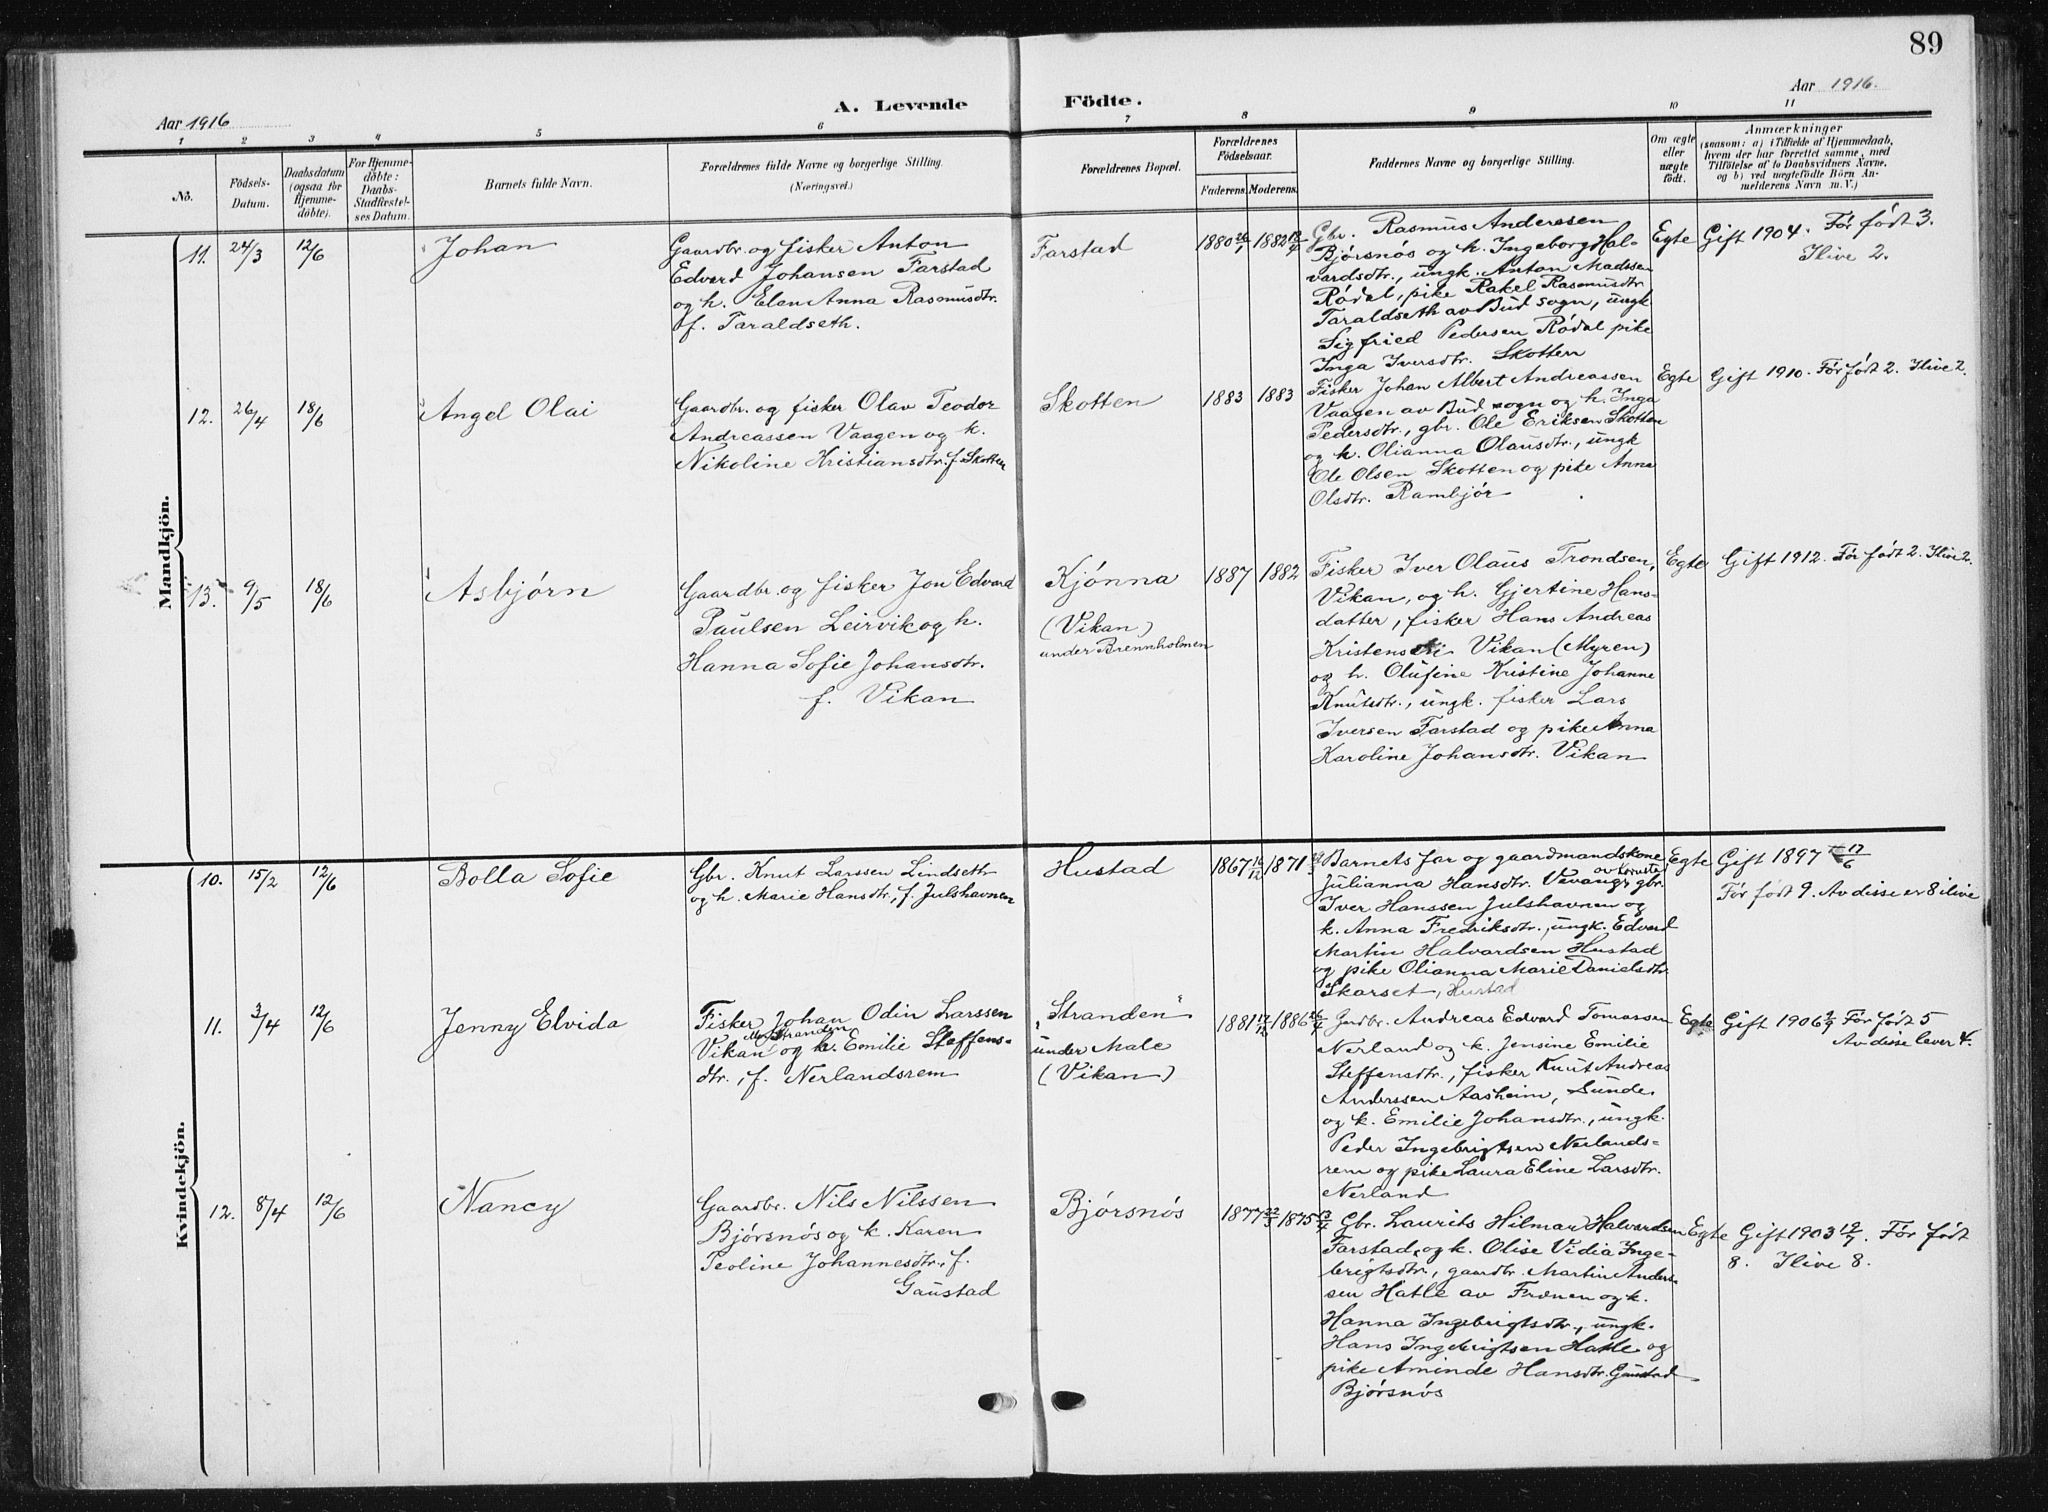 89
Aar 1916.
Aar 1916
A. Levende Födte.
1 2 3 4 5 6 7 8 9 10 11
No.
Födsels-
Datum.
Daabsdatum
(ogsaa for
Hjemme-
döbte).
For Hjemme-
döbte:
Daabs-
Stadfæstel-
ses Datum.
Barnets fulde Navn.
Forældrenes fulde Navne og borgerlige Stilling.
(Næringsvei.)
Forældrenes Bopæl.
Forældrenes
Födselsaar.
Faderens. Moderens.
Faddernes Navne og borgerlige Stilling.
Om ægte
eller
uægte
födt.
Anmærkninger
(saasom: a) i Tilfælde af Hjemmedaab,
hvem der har forrettet samme, med
Tilföielse af to Daabsvidners Navne,
og b) ved uægtefödte Börn An-
melderens Navn m. V.)
Mandkjön.
11. 24/3 12/6
Johan
Gaardbr. og fisker Anton
Edvard Johansen Farstad
og h. Elen Anna Rasmusdtr.
f. Taraldseth.
Farstad
1880 1882
Gbr. Rasmus Anderssen
Bjørsnös og h. Ingeborg Hal-
vardsdtr., ungk. Anton Madssen
Rödal, pike Rakel Rasmusdtr
Taraldseth av Bud sogn, ungk
Sigfried Pedersen Rödal pike
Inga Iversdtr. Skotten
Egte
Gift 1904. Før født 3.
Ilive 2.
12. 26/4 18/6
Angel Olai
Gaardbr. og fisker Olav Teodor
Andreassen Vaagen og k.
Nikoline Kristiansdtr. f. Skotten
Skotten
1883 1883
Fisker Johan Albert Andreassen
Vaagen av Bud sogn og h. Inga
Pedersdtr., gbr. Ole Eriksen Skotten
og k. Olianna Olausdtr., ungk
Ole Olsen Skotten og pike Anna
Olsdtr. Rambjör
Egte
Gift 1910. Før født 2. Ilive 2.
13. 9/5 18/6
Asbjørn
Gaardbr. og fisker Jon Edvard
Paulsen Leirvik og h.
Hanna Sofie Johansdtr.
f. Vikan
Kjönna
(Vikan)
under Brennholmen
1887 1882
Fisker Iver Olaus Trondsen,
Vikan, og h. Gjertine Hans-
datter, fisker Hans Andreas
Kristensen Vikan (Myren)
og h. Olufine Kristine Johanne
Knutsdtr., ungk. fisker Lars
Iversen Farstad og pike Anna
Karoline Johansdtr. Vikan
Egte
Gift 1912. Før født 2. Ilive 2.
Kvindekjön.
10. 15/2 12/6
Bolla Sofie
Gbr. Knut Larssen Lindseth
og h. Marie Hansdtr., f. Julshavnen
Hustad
1867 1871
Barnets far og gaardmandskone
Julianna Hansdtr. Vevang, gbr.
Iver Hanssen Julshavnen og
k. Anna Fredriksdtr., ungk. Edvard
Martin Halvardsen Hustad
og pike Olianna Marie Danielsdtr.
Skarset, Hustad
Egte
Gift 1897 17/6
Før født 9. Av disse er 8 ilive
11. 3/4 12/6
Jenny Elvida
Fisker Johan Odin Larssen
Vikan og k. Emilie Steffens-
dtr., f. Nerlandsrem
"Stranden"
under Male
(Vikan)
1881 1886
Gardbr. Andreas Edvard Tomassen
Nerland og k. Jensine Emilie
Steffensdtr., fisker Knut Andreas
Anderssen Aasheim, Sunde
og k. Emilie Johansdtr., ungk.
Peder Ingebrigtsen Nerlands-
rem og pike Laura Eline Larsdtr.
Nerland
Egte
Gift 1906 Før født 5
Av disse lever 4.
12. 8/4 12/6
Nancy
Gaardbr. Nils Nilssen
Bjørsnös og k. Karen
Peoline Johannesdtr., f.
Gaustad
Bjørsnös
1877 1875
Gbr. Laurits Hilmar Halvardsen
Farstad, og k. Olise Vidia Inge-
brigtsdtr., gaardbr. Martin Anders-
sen Hatle av Frænen og k.
Hanna Ingebrigtsdtr., ungk.
Hans Ingebrigtsen Hatle og
pike Aminde Hansdtr. Gaustad
Bjørsnös
Egte
Gift 1903 Før født
8. Ilive 8.